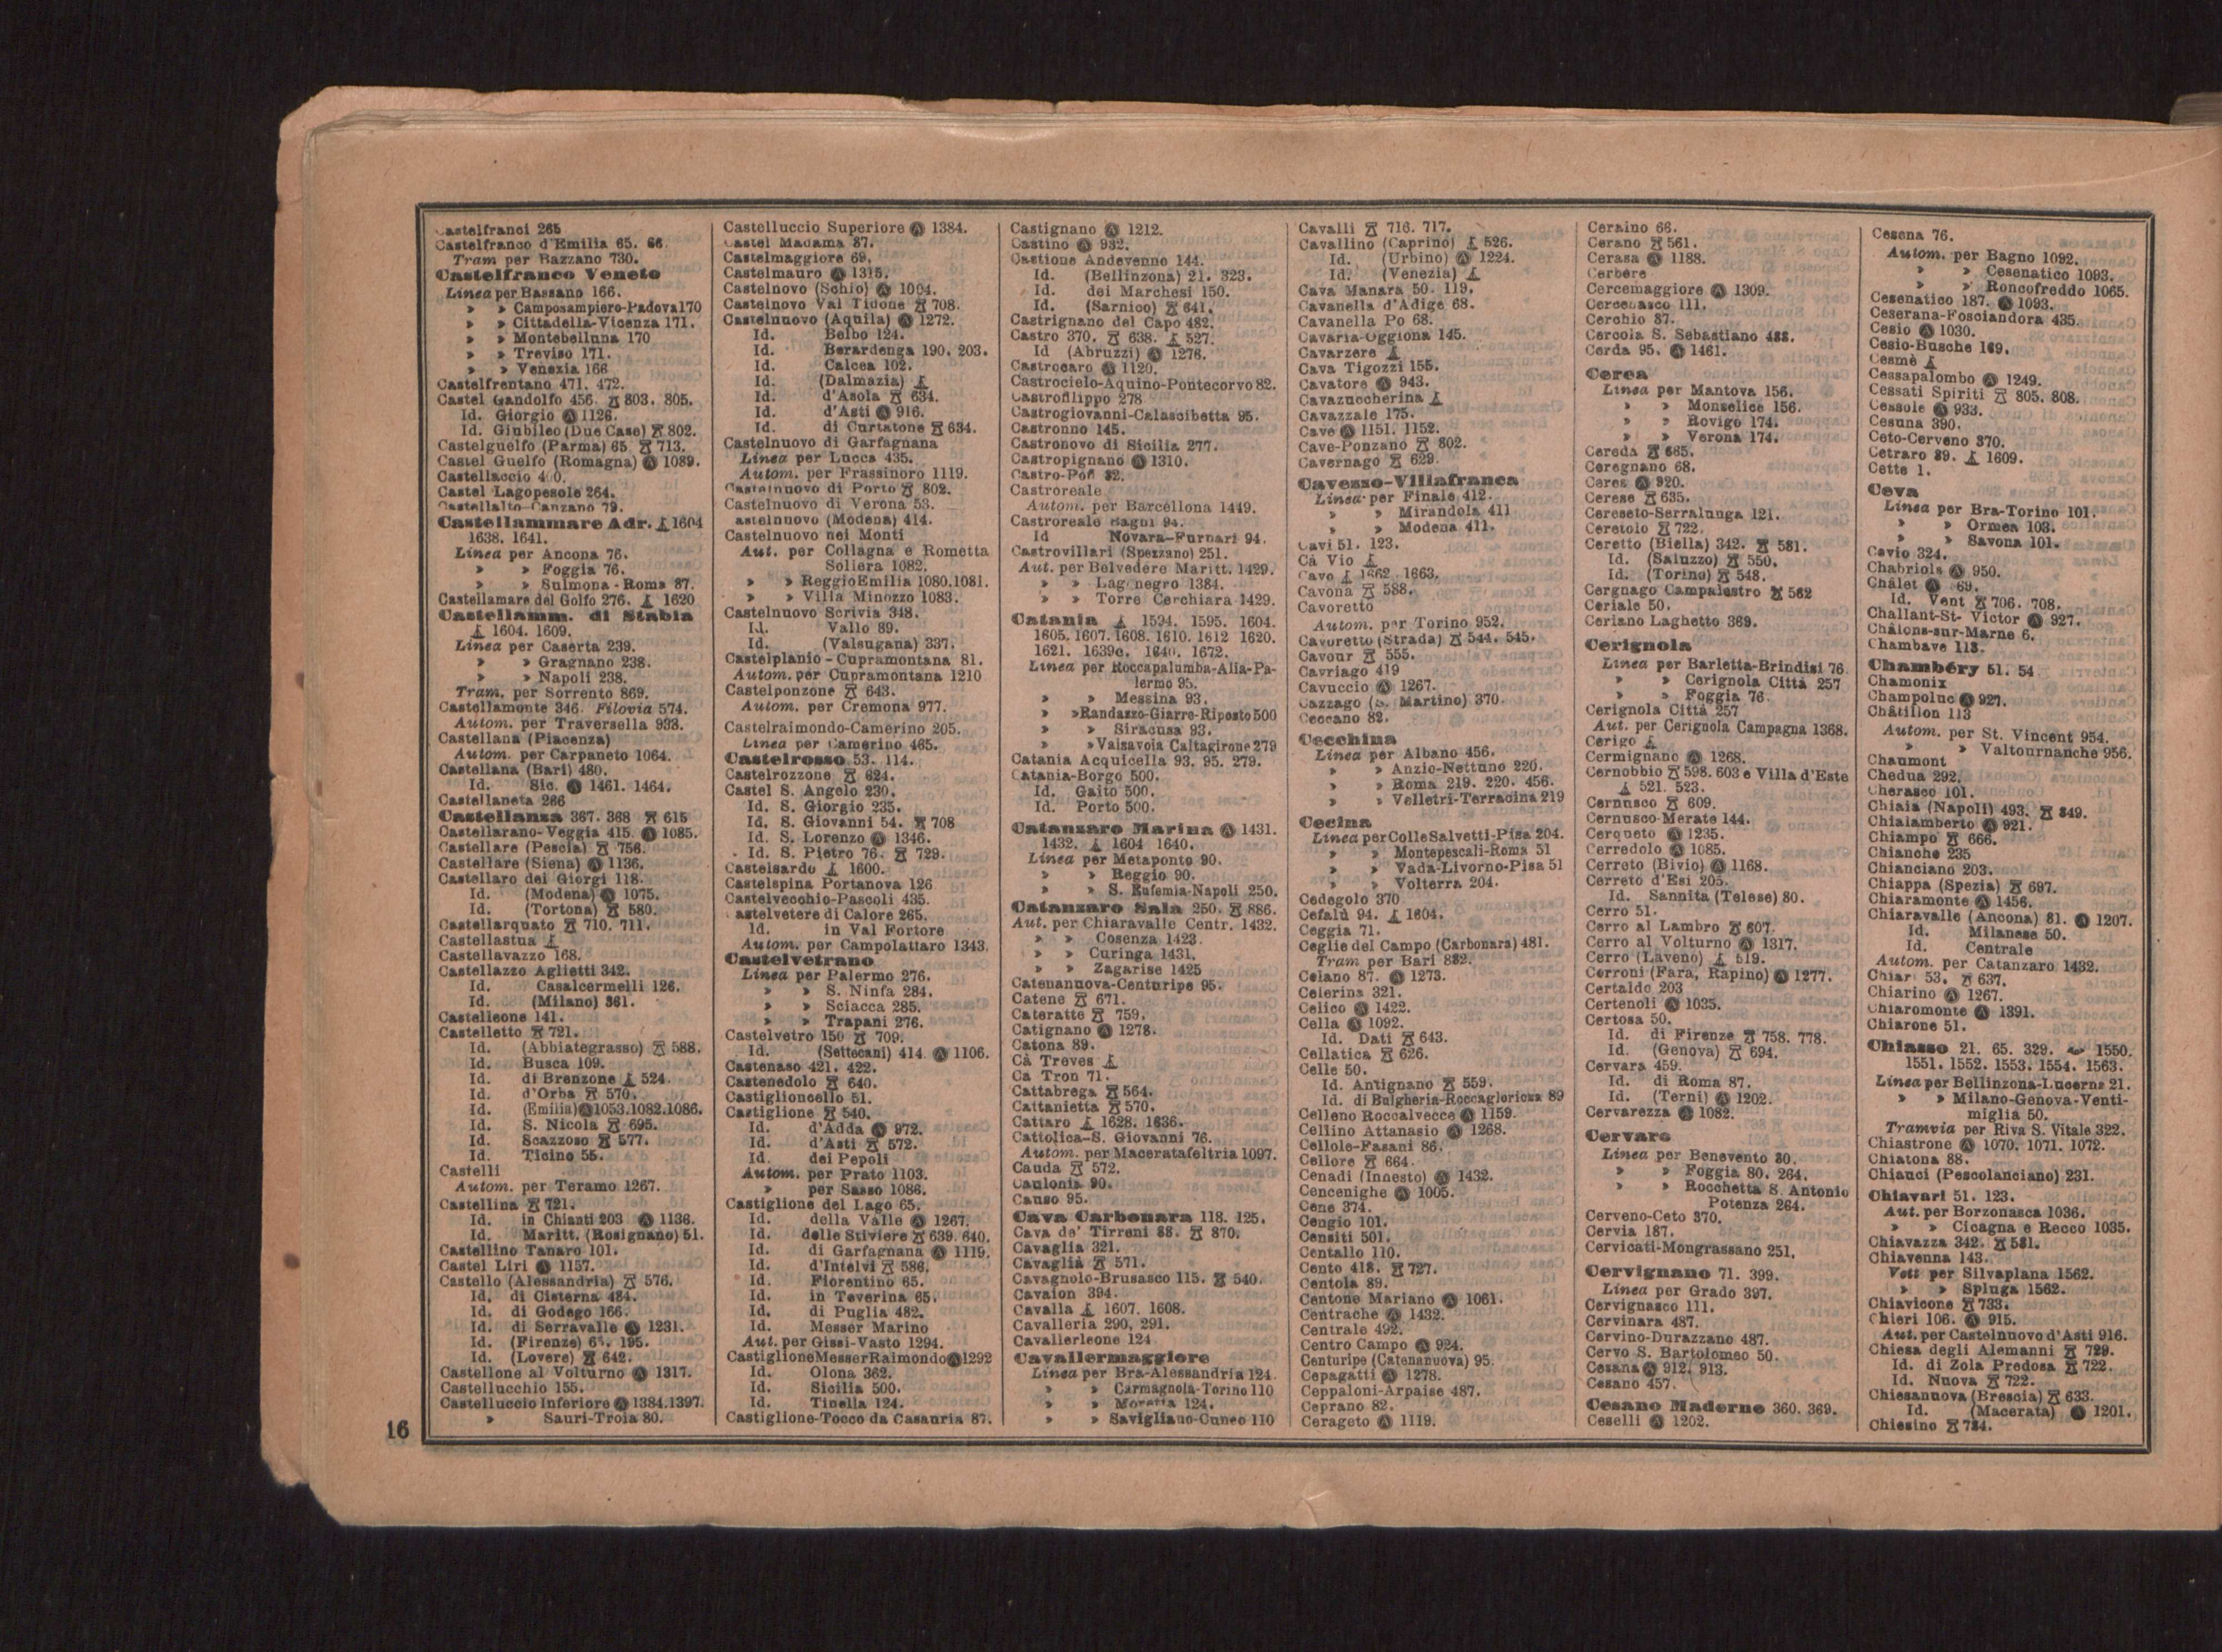 Castelfranci 265
Castelfranco d'Emilia 65. 66.
Tram per Bazzano 730.
Castelfranco Veneto
Linea per Bassano 166.
» » Camposampiero-Padova 170
» » Cittadella-Vicenza 171.
» » Montebelluna 170
» » Treviso 171.
» » Venezia 166
Castelfrentano 471. 472.
Castel Gandolfo 456. 803. 805.
Id. Giorgio Ⓐ 1126.
Id. Giubileo (Due Case) 802.
Castelguelfo (Parma) 65 713.
Castel Guelfo (Romagna) Ⓐ 1089.
Castellaccio
Castel Lagopesole 264.
Castellalto-Canzano 79.
Castellammare Adr. 1604
1638. 1641.
Linea per Ancona 76.
» » Foggia 76.
» » Sulmona-Roma 87.
Castellamare del Golfo 276. 1620
Castellamm. di Stabia
1604. 1609.
Linea per Caserta 239.
» » Gragnano 238.
» » Napoli 238.
Tram. per Sorrento 869.
Castellamonte 346. Filovia 574.
Autom. per Traversella 933.
Castellana (Piacenza)
Autom. per Carpaneto 1064.
Castellana (Bari) 480.
Id. Sic. Ⓐ 1461. 1464.
Castellaneta 286
Castellanza 367. 368 615
Castellarano-Veggia 415. Ⓐ 1085.
Castellare (Pescia) 756.
Castellare (Siena) Ⓐ 1136.
Castellaro dei Giorgi 118.
Id. (Modena) Ⓐ 1075.
Id. (Tortona) 580.
Castellarquato 710. 711.
Castellastua
Castellavazzo 168.
Castellazzo Aglietti 342.
Id. Casalcermelli 126.
Id. (Milano) 361.
Castelleone 141.
Castelletto 721.
Id. (Abbiategrasso) 588.
Id. Busca 109.
Id. di Brenzone 524.
Id. d'Orba 570.
Id. (Emilia) Ⓐ 1053.1082.1086.
Id. S. Nicola 695.
Id. Scazzoso 577.
Id. Ticino 55.
Castelli
Autom. per Teramo 1267.
Castellina 721.
Id. in Chianti 203 Ⓐ 1136.
Id. Maritt. (Rosignano) 51.
Castellino Tanaro 101.
Castel Liri Ⓐ 1157.
Castello (Alessandria) 576.
Id. di Cisterna 484.
Id. di Godego 166.
Id. di Serravalle Ⓐ 1231.
Id. (Firenze) 195.
Id. (Lovere) 642.
Castellone al Volturno Ⓐ 1317.
Castellucchio 155.
Castelluccio Inferiore Ⓐ 1384.1397.
» Sauri-Troia 80.
16
Castelluccio Superiore Ⓐ 1384.
Castel Madama 87.
Castelmaggiore 69.
Castelmauro Ⓐ 1315.
Castelnovo (Schio) Ⓐ 1004.
Castelnovo Val Tidone 708.
Castelnuovo (Aquila) Ⓐ 1272.
Id. Belbo 124.
Id. Berardenga 190. 203.
Id. Calcea 102.
Id. (Dalmazia)
Id. d'Asola 634.
Id. d'Asti Ⓐ 916.
Id. di Curtatone 634.
Castelnuovo di Garfagnana
Linea per Lucca 435.
Autom. per Frassinoro 1119.
Castelnuovo di Porto 802.
Castelnuovo di Verona 53.
Castelnuovo (Modena) 414.
Castelnuovo nei Monti
Aut. per Collagna e Rometta
Soliera 1082.
» » Reggio Emilia 1080.1081.
» » Villa Minozzo 1083.
Castelnuovo Scrivia 348.
Id. Vallo 89.
Id. (Valsugana) 337.
Castelplanio - Cupramontana 81.
Autom. per Cupramontana 1210
Castelponzone 643.
Autom. per Cremona 977.
Castelraimondo-Camerino 205.
Linea per Camerino 465.
Castelrosso 53. 114.
Castelrozzone 624.
Castel S. Angelo 230.
Id. S. Giorgio 235.
Id. S. Giovanni 54. 708
Id. S. Lorenzo Ⓐ 1346.
Id. S. Pietro 76. 729.
Castelsardo 1600.
Castelspina Portanova 126
Castelvecchio-Pascoli 435.
Castelvetere di Calore 265.
Id. in Val Fortore
Autom. per Campolattaro 1343.
Castelvetrano
Linea per Palermo 276.
» » S. Ninfa 284.
» » Sciacca 285.
» » Trapani 276.
Castelvetro 150 709.
Id. (Settecani) 414. Ⓐ 1106.
Castenaso 421. 422.
Castenedolo 640.
Castiglioncello 51.
Castiglione 540.
Id. d'Adda Ⓐ 972.
Id. d'Asti 572.
Id. dei Pepoli
Autom. per Prato 1103.
» per Sasso 1086.
Castiglione del Lago 65.
Id. della Valle Ⓐ 1267.
Id. delle Stiviere 639. 640.
Id. di Garfagnana Ⓐ 1119.
Id. d'Intelvi 586.
Id. Fiorentino 65.
Id. in Teverina 65.
Id. di Puglia 482.
Id. Messer Marino
Aut. per Gissi-Vasto 1294.
Castiglione Messer Raimondo Ⓐ 1292
Id. Olona 362.
Id. Sicilia 500.
Id. Tinella 124.
Castiglione-Tocco da Casauria 87.
Castignano Ⓐ 1212.
Castino Ⓐ 932.
Castione Andevenno 144.
Id. (Bellinzona) 21. 323.
Id. dei Marchesi 150.
Id. (Sarnico) 641.
Castrignano del Capo 482.
Castro 370. 638. 527.
Id (Abruzzi) Ⓐ 1276.
Castrocaro Ⓐ 1120.
Castrocielo-Aquino-Pontecorvo 82.
Castrofilippo 278
Castrogiovanni-Calascibetta 95.
Castronno 145.
Castronovo di Sicilia 277.
Castropignano Ⓐ 1310.
Castro-Pofi 82.
Castroreale
Autom. per Barcellona 1449.
Castroreale Bagni 94.
Id Novara-Furnari 94.
Castrovillari (Spezzano) 251.
Aut. per Belvedere Maritt. 1429.
» » Lagonegro 1384.
» » Torre Cerchiara 1429.
Catania 1594. 1595. 1604.
1605. 1607. 1608. 1610. 1612 1620.
1621. 1639c. 1640. 1672.
Linea per Roccapalumba-Alia-Pa-
lermo 95.
» » Messina 93.
» » Randazzo-Giarre-Riposto 500
» » Siracusa 93.
» » Valsavoia Caltagirone 279
Catania Acquicella 93. 95. 279.
Catania-Borgo 500.
Id. Gaito 500.
Id. Porto 500.
Catanzaro Marina Ⓐ 1431.
1432. 1604 1640.
Linea per Metaponto 90.
» » Reggio 90.
» » S. Eufemia-Napoli 250.
Catanzaro Sala 250. 886.
Aut. per Chiaravalle Centr. 1432.
» » Cosenza 1423.
» » Curinga 1431.
» » Zagarise 1425
Catenanuova-Centuripe 95.
Catene 671.
Cateratte 759.
Catignano Ⓐ 1278.
Catona 89.
Cà Treves
Ca Tron 71.
Cattabrega 564.
Cattanietta 570.
Cattaro 1628. 1636.
Cattolica-S. Giovanni 76.
Autom. per Maceratafeltria 1097.
Cauda 572.
Caulonia 90.
Causo 95.
Cava Carbonara 118. 125.
Cava de' Tirreni 88. 870.
Cavaglia 321.
Cavaglià 571.
Cavagnolo-Brusasco 115. 540.
Cavaion 394.
Cavalla 1607. 1608.
Cavalleria 290. 291.
Cavallerleone 124
Cavallermaggiore
Linea per Bra-Alessandria 124.
» » Carmagnola-Torino 110
» » Moretta 124.
» » Savigliano-Cuneo 110
Cavalli 716. 717.
Cavallino (Caprino) 526.
Id. (Urbino) Ⓐ 1224.
Id. (Venezia)
Cava Manara 50. 119.
Cavanella d'Adige 68.
Cavanella Po 68.
Cavaria-Oggiona 145.
Cavarzere
Cava Tigozzi 155.
Cavatore Ⓐ 943.
Cavazuccherina
Cavazzale 175.
Cave Ⓐ 1151. 1152.
Cave-Ponzano 802.
Cavernago 629.
Cavezzo-Villafranca
Linea per Finale 412.
» » Mirandola 411
» » Modena 411.
Cavi 51. 123.
Cà Vio
Cavo 1662 1663.
Cavona 588.
Cavoretto
Autom. per Torino 952.
Cavoretto (Strada) 544. 545.
Cavour 555.
Cavriago 419
Cavuccio Ⓐ 1267.
Cazzago (S. Martino) 370.
Ceccano 82.
Cecchina
Linea per Albano 456.
» » Anzio-Nettuno 220.
» » Roma 219. 220. 456.
» » Velletri-Terracina 219
Cecina
Linea per Colle Salvetti-Pisa 204.
» » Montepescali-Roma 51
» » Vada-Livorno-Pisa 51
» » Volterra 204.
Cedegolo 370
Cefalù 94. 1604.
Ceggia 71.
Ceglie del Campo (Carbonara) 481.
Tram per Bari 882.
Celano 87. Ⓐ 1273.
Celerina 321.
Celico Ⓐ 1422.
Cella Ⓐ 1092.
Id. Dati 643.
Cellatica 626.
Celle 50.
Id. Antignano 559.
Id. di Bulgheria-Roccagloriosa 89
Celleno Roccalvecce Ⓐ 1159.
Cellino Attanasio Ⓐ 1268.
Cellole-Fasani 86.
Cellore 664.
Cenadi (Innesto) Ⓐ 1432.
Cencenighe Ⓐ 1005.
Cene 374.
Cengio 101.
Censiti 501.
Centallo 110.
Cento 418. 727.
Centola 89.
Centone Mariano Ⓐ 1061.
Centrache Ⓐ 1432.
Centrale 492.
Centro Campo Ⓐ 924.
Centuripe (Catenanuova) 95.
Cepagatti Ⓐ 1278.
Ceppaloni-Arpaise 487.
Ceprano 82.
Cerageto Ⓐ 1119.
Ceraino 66.
Cerano 561.
Cerasa Ⓐ 1188.
Cerbère
Cercemaggiore Ⓐ 1309.
Cercenasco 111.
Cerchio 87.
Cercola S. Sebastiano 488.
Cerda 95. Ⓐ 1461.
Cerea
Linea per Mantova 156.
» » Monselice 156.
» » Rovigo 174.
» » Verona 174.
Cereda 665.
Ceregnano 68.
Ceres Ⓐ 920.
Cerese 635.
Cereseto-Serralunga 121.
Ceretolo 722.
Ceretto (Biella) 342. 581.
Id. (Saluzzo) 550.
Id. (Torino) 548.
Cergnago Campalestro 562
Ceriale 50.
Ceriano Laghetto 369.
Cerignola
Linea per Barletta-Brindisi 76
» » Cerignola Città 257
» » Foggia 76.
Cerignola Città 257
Aut. per Cerignola Campagna 1368.
Cerigo
Cermignano Ⓐ 1268.
Cernobbio 598. 603 e Villa d'Este
521. 523.
Cernusco 609.
Cernusco-Merate 144.
Cerqueto Ⓐ 1235.
Cerredolo Ⓐ 1085.
Cerreto (Bivio) Ⓐ 1168.
Cerreto d'Esi 205.
Id. Sannita (Telese) 80.
Cerro 51.
Cerro al Lambro 607.
Cerro al Volturno Ⓐ 1317.
Cerro (Laveno) 519.
Cerroni (Fara, Rapino) Ⓐ 1277.
Certaldo 203
Certenoli Ⓐ 1035.
Certosa 50.
Id. di Firenze 758. 778.
Id. (Genova) 694.
Cervara 459.
Id. di Roma 87.
Id. (Terni) Ⓐ 1202.
Cervarezza Ⓐ 1082.
Cervaro
Linea per Benevento 80.
» » Foggia 80. 264.
» » Rocchetta S. Antonio
Potenza 264.
Cerveno-Ceto 370.
Cervia 187.
Cervicati-Mongrassano 251.
Cervignano 71. 399.
Linea per Grado 397.
Cervignasco 111.
Cervinara 487.
Cervino-Durazzano 487.
Cervo S. Bartolomeo 50.
Cesana Ⓐ 912. 913.
Cesano 457.
Cesano Maderno 360. 369.
Ceselli Ⓐ 1202.
Cesena 76.
Autom. per Bagno 1092.
» » Cesenatico 1093.
» » Roncofreddo 1065.
Cesenatico 187. Ⓐ 1093.
Ceserana-Fosciandora 435.
Cesio Ⓐ 1030.
Cesio-Busche 169.
Cesmè
Cessapalombo Ⓐ 1249.
Cessati Spiriti 805. 808.
Cessole Ⓐ 933.
Cesuna 390.
Ceto-Cerveno 370.
Cetraro 89. 1609.
Cette 1.
Ceva
Linea per Bra-Torino 101.
» » Ormea 103.
» » Savona 101.
Cevio 324.
Chabriols Ⓐ 950.
Châlet Ⓐ 69.
Id. Vent 706. 708.
Challant-St- Victor Ⓐ 927.
Châlons-sur-Marne 6.
Chambave 113.
Chambéry 51. 54
Chamonix
Champoluc Ⓐ 927.
Châtillon 113
Autom. per St. Vincent 954.
» » Valtournanche 956.
Chaumont
Chedua 292.
Cherasco 101.
Chiaia (Napoli) 493. 849.
Chialamberto Ⓐ 921.
Chiampo 666.
Chianche 235
Chianciano 203.
Chiappa (Spezia) 697.
Chiaramonte Ⓐ 1456.
Chiaravalle (Ancona) 81. Ⓐ 1207.
Id. Milanese 50.
Id. Centrale
Autom. per Catanzaro 1432.
Chiari 53. 637.
Chiarino Ⓐ 1267.
Chiaromonte Ⓐ 1391.
Chiarone 51.
Chiasso 21. 65. 329. 1550.
1551. 1552. 1553. 1554. 1563.
Linea per Bellinzona-Lucerna 21.
» » Milano-Genova-Venti-
miglia 50.
Tramvia per Riva S. Vitale 322.
Chiastrone Ⓐ 1070. 1071. 1072.
Chiatona 88.
Chiauci (Pescolanciano) 231.
Chiavari 51. 123.
Aut. per Borzonasca 1036.
» » Cicagna e Recco 1035.
Chiavazza 342. 581.
Chiavenna 143.
Vett per Silvaplana 1562.
» » Spluga 1562.
Chiavicone 733.
Chieri 106. Ⓐ 915.
Aut. per Castelnuovo d'Asti 916.
Chiesa degli Alemanni 729.
Id. di Zola Predosa 722.
Id. Nuova 722.
Chiesanuova (Brescia) 633.
Id. (Macerata) Ⓐ 1201.
Chiesino 734.